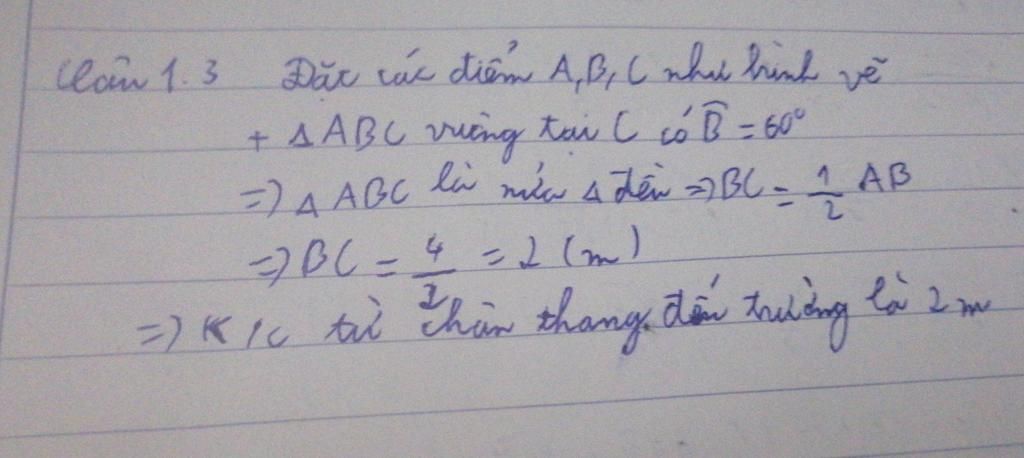 Câu 1.3 Đặt các điểm A, B, C như hình vẽ
+ Δ ABC vuông tại C có B̂ = 60°
=> Δ ABC là nửa Δ đều => BC = 1/2 AB
=> BC = 4/2 = 2 (m)
=> K/c từ chân thang đến tường là 2m